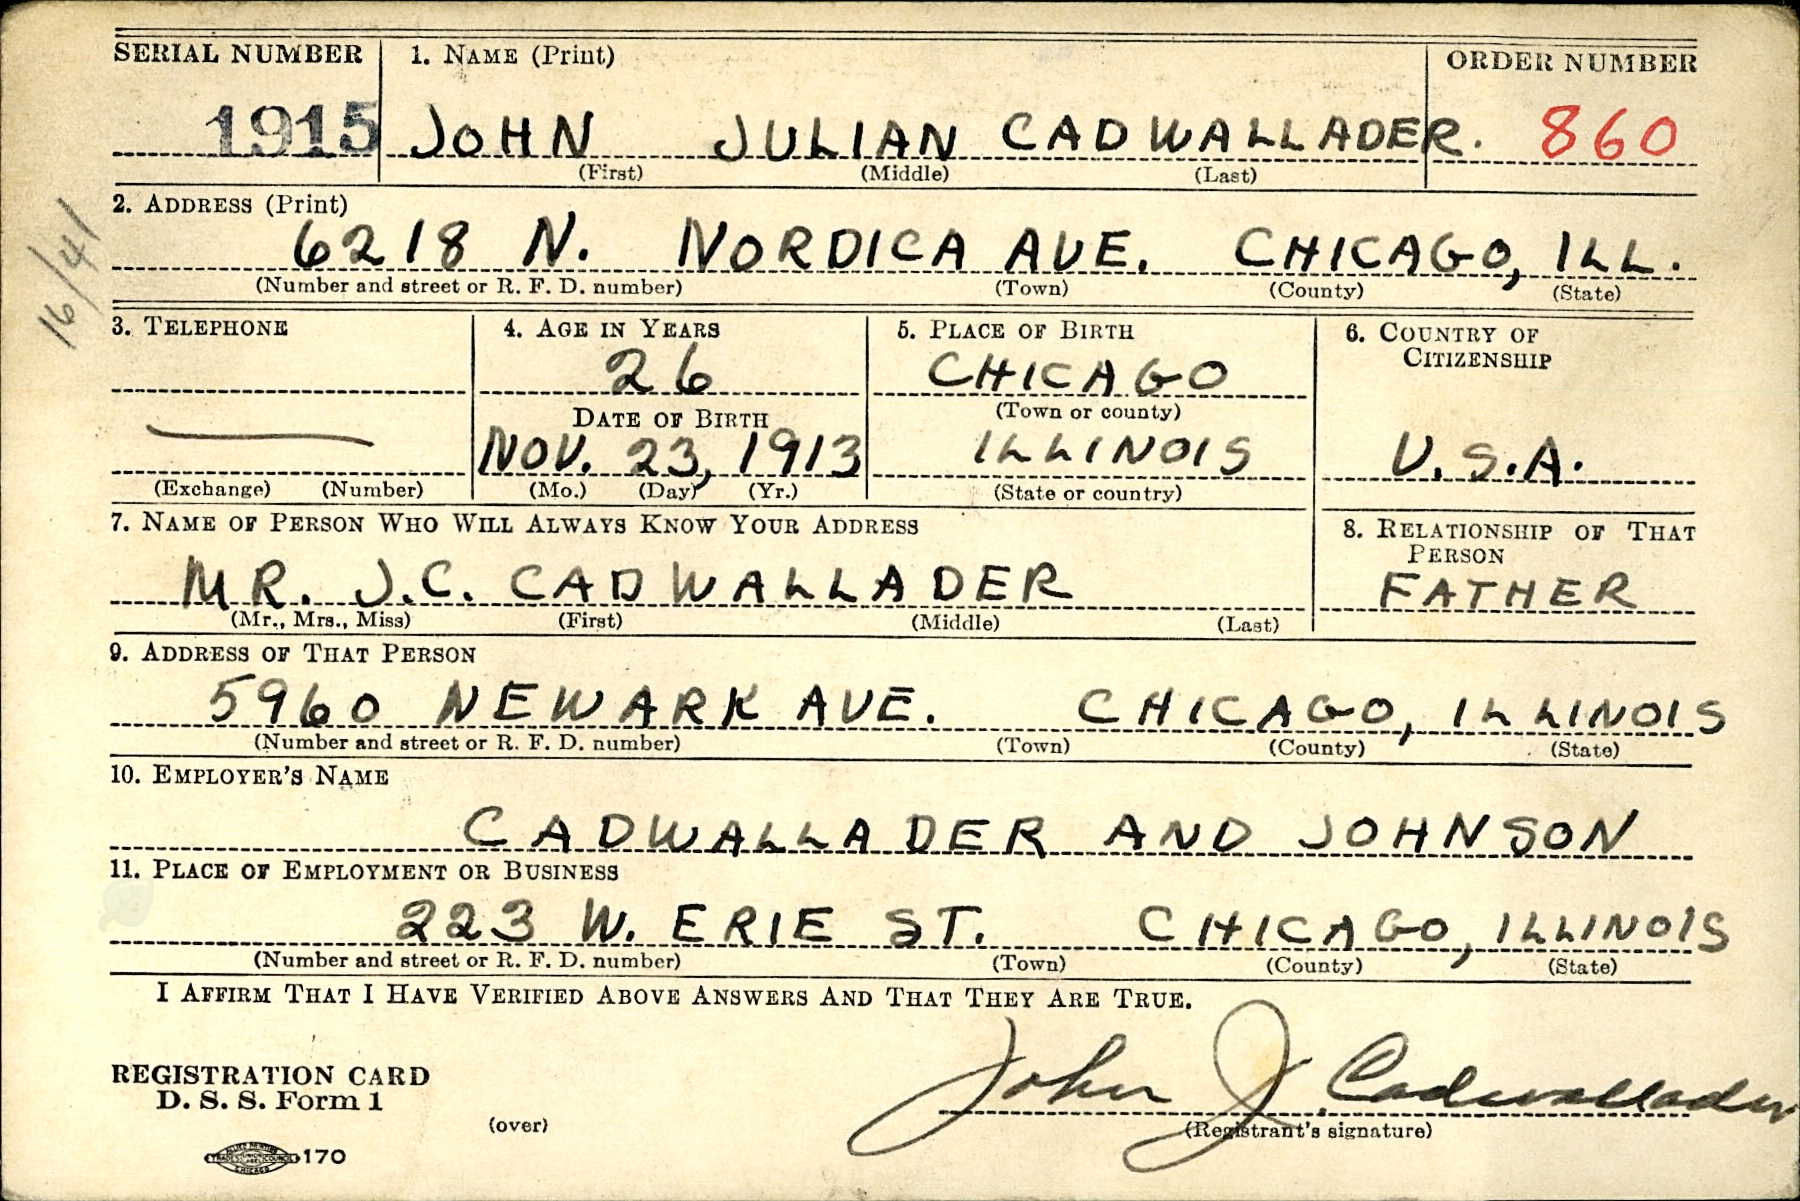 SERIAL NUMBER 1. NAME (Print) ORDER NUMBER
1915 JOHN JULIAN CADWALLADER. 860
(First) (Middle) (Last)
16/41
2. ADDRESS (Print)
6218 N. NORDICA AVE. CHICAGO, ILL.
(Number and street or R. F. D. number) (Town) (County) (State)
3. TELEPHONE 4. AGE IN YEARS 5. PLACE OF BIRTH 6. COUNTRY OF
CITIZENSHIP
26 CHICAGO
DATE OF BIRTH (Town or county)
NOV. 23, 1913 ILLINOIS U.S.A.
(Exchange) (Number) (Mo.) (Day) (Yr.) (State or country)
7. NAME OF PERSON WHO WILL ALWAYS KNOW YOUR ADDRESS 8. RELATIONSHIP OF THAT
PERSON
MR. J.C. CADWALLADER FATHER
(Mr., Mrs., Miss) (First) (Middle) (Last)
9. ADDRESS OF THAT PERSON
5960 NEWARK AVE. CHICAGO, ILLINOIS
(Number and street or R. F. D. number) (Town) (County) (State)
10. EMPLOYER'S NAME
CADWALLADER AND JOHNSON
11. PLACE OF EMPLOYMENT OR BUSINESS
223 W. ERIE ST. CHICAGO, ILLINOIS
(Number and street or R. F. D. number) (Town) (County) (State)
I AFFIRM THAT I HAVE VERIFIED ABOVE ANSWERS AND THAT THEY ARE TRUE.
John J. Cadwallader
REGISTRATION CARD
D. S. S. Form 1
(over) (Registrant's signature)
170